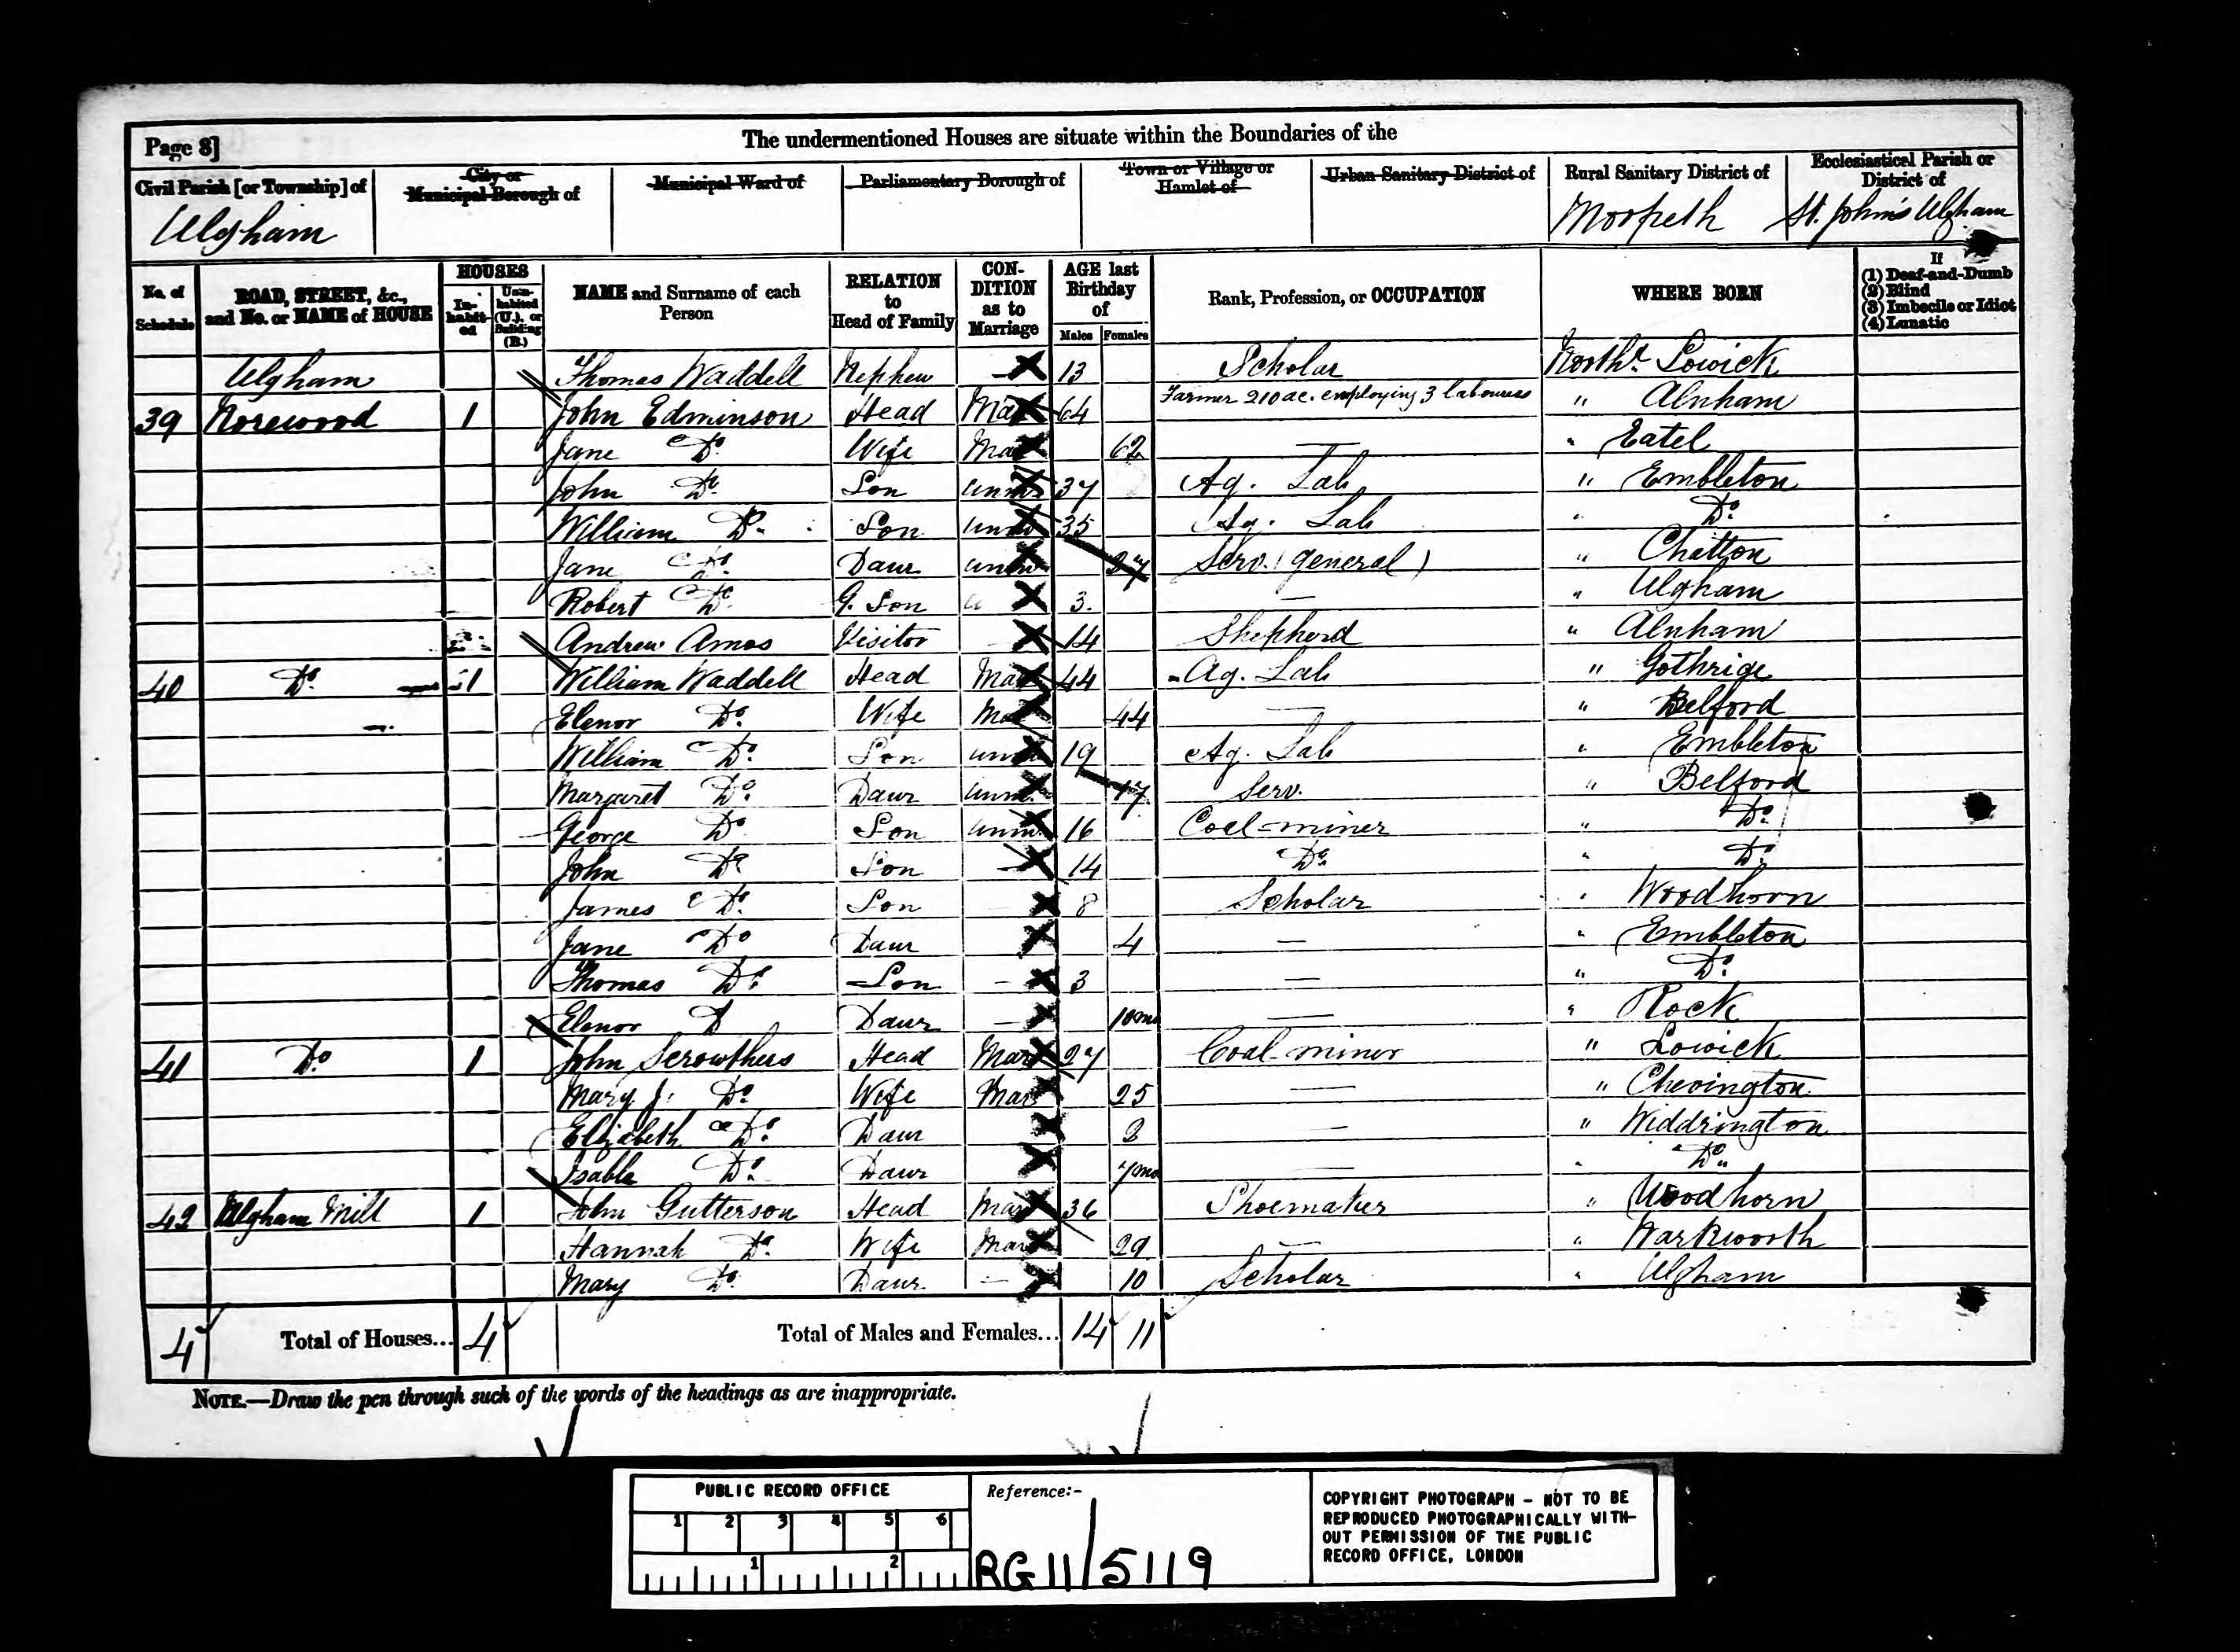 Page 8]
The undermentioned Houses are situate within the Boundaries of the
Civil Parish [or Township] of
City or Municipal Borough of
Municipal Ward of
Parliamentary Borough of
Town or Village or Hamlet of
Urban Sanitary District of
Rural Sanitary District of
Ecclesiastical Parish or District of
Ulgham
Morpeth
St. John's Ulgham
No. of Schedule
ROAD, STREET, &c., and No. or NAME of HOUSE
HOUSES
In-habit-ed
Unin-habited (U.), or Building (B.)
NAME and Surname of each Person
RELATION to Head of Family
CON-DITION as to Marriage
AGE last Birthday of
Males Females
Rank, Profession, or OCCUPATION
WHERE BORN
If
(1) Deaf-and-Dumb
(2) Blind
(3) Imbecile or Idiot
(4) Lunatic
Ulgham Thomas Waddell Nephew — 13 Scholar Northd. Lowick
39 Norewood 1 John Edminson Head Mar 64 Farmer 210 ac. employing 3 labourers " Alnham
Jane Do. Wife Mar 62 — " Eatel
John Do. Son Unm 37 Ag. Lab " Embleton
William Do. Son Unm 35 Ag. Lab " Do.
Jane Do. Daur Unm 27 Serv. (general) " Chatton
Robert Do. G. Son 3 — " Ulgham
Andrew Amos Visitor — 14 Shepherd " Alnham
40 Do. 1 William Waddell Head Mar 44 Ag. Lab " Gothrige
Elenor Do. Wife Mar 44 — " Belford
William Do. Son Unm 19 Ag. Lab " Embleton
Margaret Do. Daur Unm. 17 Serv. " Belford
George Do. Son Unm. 16 Coal-miner " Do.
John Do. Son — 14 Do. " Do.
James Do. Son — 8 Scholar " Woodhorn
Jane Do Daur 4 — " Embleton
Thomas Do. Son — 3 — " Do.
Elenor D Daur — 10mo — " Rock
41 Do. 1 John Scrowthers Head Mar 27 Coal-miner " Lowick
Mary J. Do. Wife Mar 25 — " Chevington
Elizabeth Do. Daur 2 — " Widdrington
Isabla Do. Daur 7mo — " Do.
42 Ulgham Mill 1 John Gutterson Head Mar 36 Shoemaker " Woodhorn
Hannah Do. Wife Mar 29 — " Warkworth
Mary Do. Daur — 10 Scholar " Ulgham
4 Total of Houses... 4 Total of Males and Females... 14 11
NOTE.—Draw the pen through such of the words of the headings as are inappropriate.
PUBLIC RECORD OFFICE
1 2 3 4 5 6
1 2
Reference:-
RG 11/5119
COPYRIGHT PHOTOGRAPH – NOT TO BE
REPRODUCED PHOTOGRAPHICALLY WITH-
OUT PERMISSION OF THE PUBLIC
RECORD OFFICE, LONDON